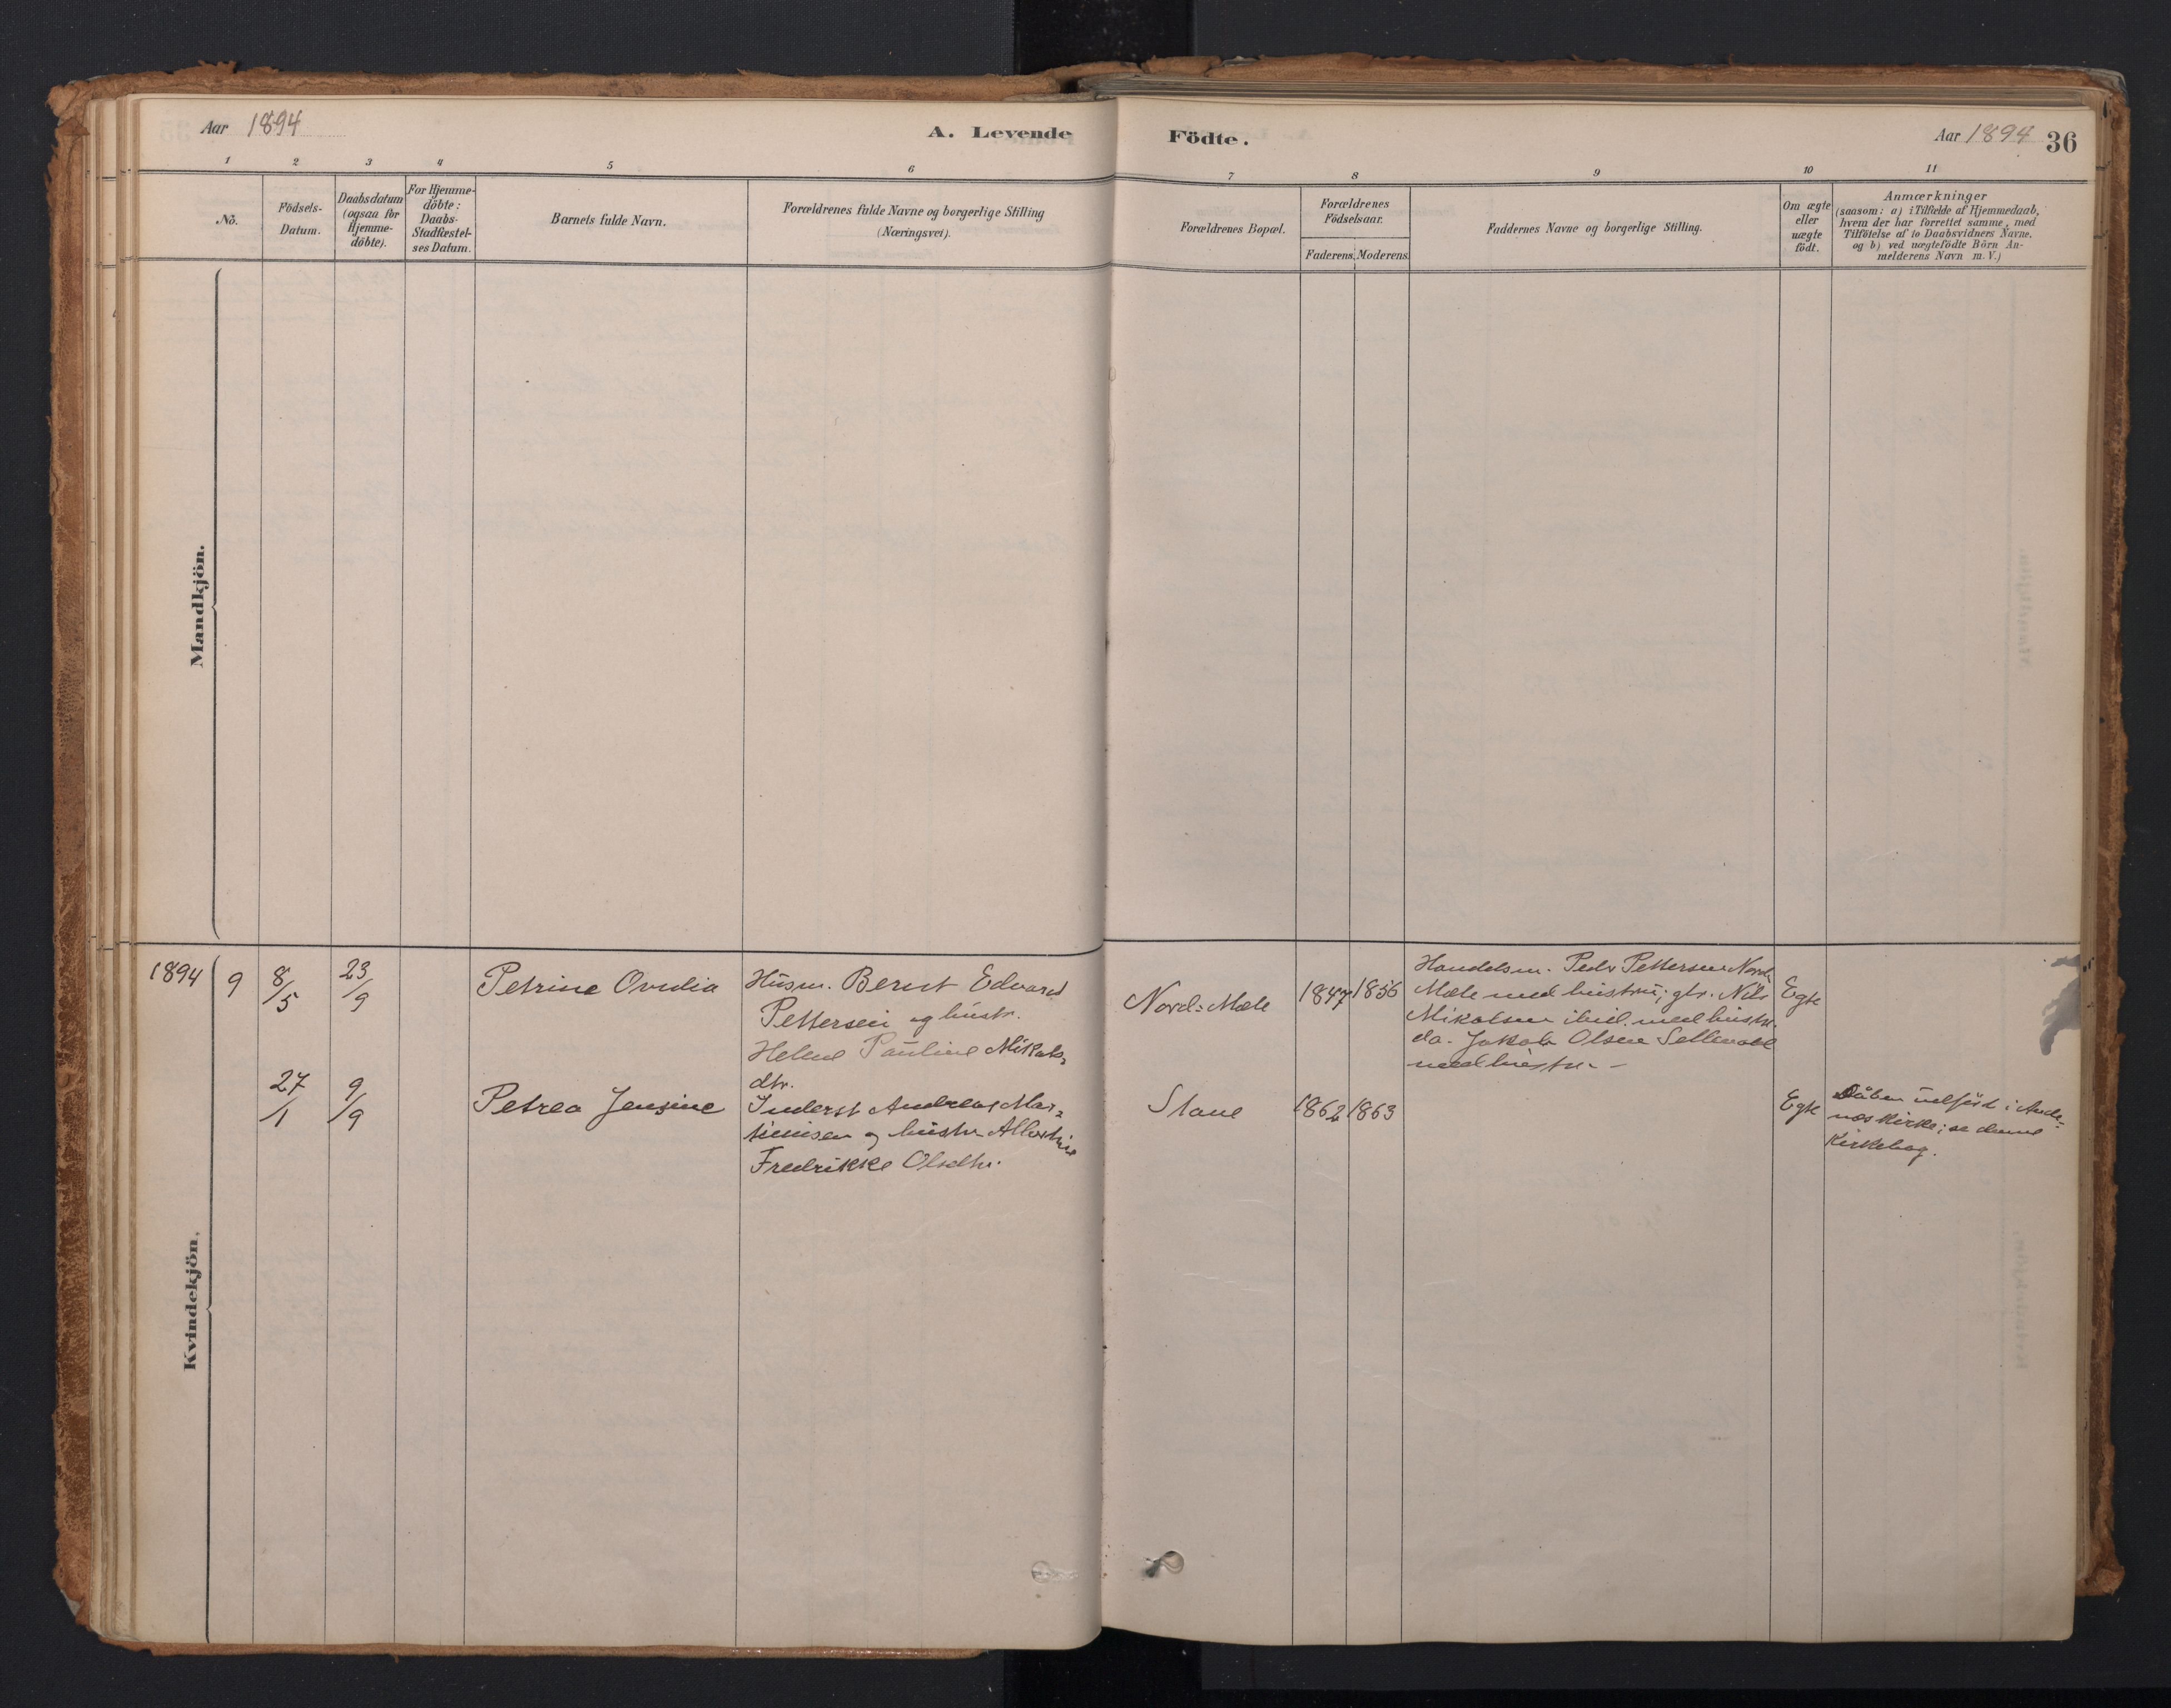 Aar 1894
A. Levende
Födte.
Aar 1894 36
1 2 3 4 5 6 7 8 9 10 11
No.
Födsels-
Datum.
Daabsdatum
(ogsaa for
Hjemme-
döbte).
For Hjemme-
döbte:
Daabs-
Stadfæstel-
ses Datum.
Barnets fulde Navn.
Forældrenes fulde Navne og borgerlige Stilling
(Næringsvei).
Forældrenes Bopæl.
Forældrenes
Födselsaar.
Faderens. Moderens.
Faddernes Navne og borgerlige Stilling.
Om ægte
eller
uægte
födt.
Anmærkninger
(saasom: a) i Tilfælde af Hjemmedaab,
hvem der har forrettet samme, med
Tilföielse af to Daabsvidners Navne.
og b) ved uægtefödte Börn An-
melderens Navn m. V.)
Mandkjön.
Kvindekjön.
1894 9 8/5 23/9
Petrine Ovidia
Husm. Bernt Edvard
Pettersen og hustr.
Helene Pauline Mikals
dtr.
Nord-Mæle
1847 1856
Handelsm. Peder Pettersen Nord-
Mæle med hustru; gbr. Nils
Mikalsen ibid. med hustr.
da. Jakob Olsen Sellevold
med hustr. -
Egte
27/1 9/9
Petrea Jensine
Inderst Andreas Mar-
tinusen og hustr. Albertine
Fredrikke Olsdtr.
Stave
1862 1863
Egte
Dåben udførd i Ande-
næs Kirke; se denne
Kirkebog.